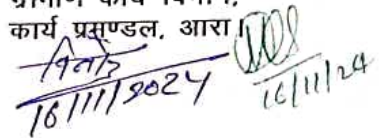 ग्रामीण कार्य विभाग,
कार्य प्रमण्डल, आरा।
16/11/2024
16/11/24